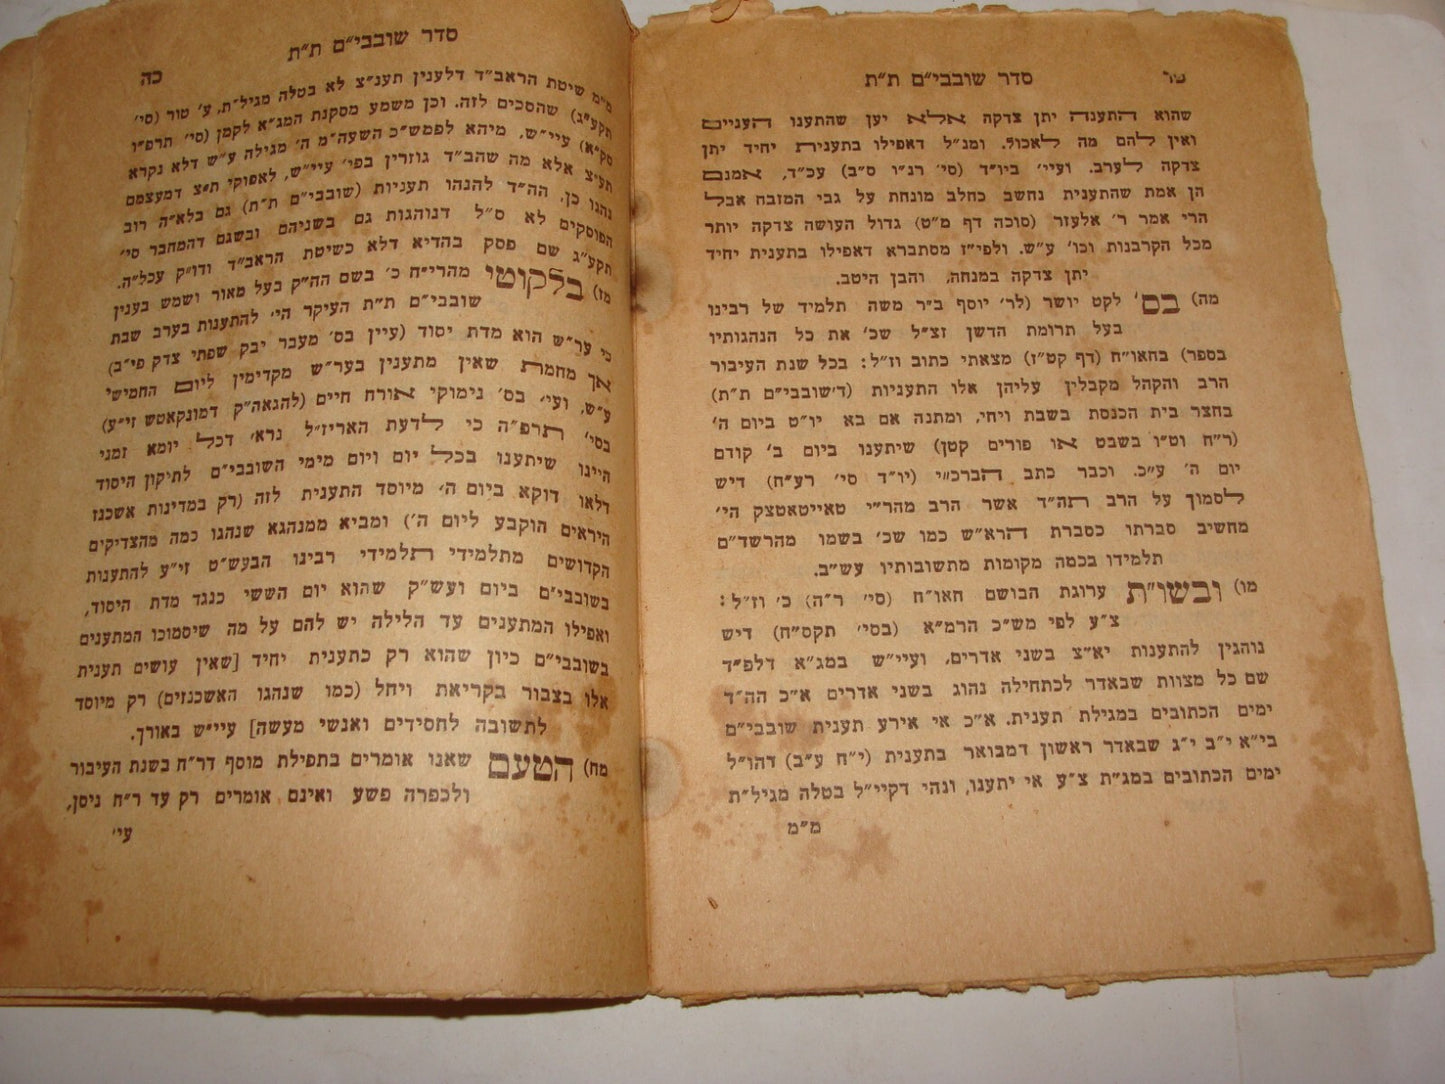 סדר שובבי״ם ת״ת
שהוא התענה יתן צדקה אלא יען שהתענו העניים
ואין להם מה לאכול. ומנ״ל דאפילו בתענית יחיד יתן
צדקה לערב. ועיי׳ ביו״ד (סי׳ רנ״ו ס״ב) עכ״ד, אמנם
הן אמת שהתענית נחשב כחלב מונחת על גבי המזבח אבל
הרי אמר ר׳ אלעזר (סוכה דף מ״ט) גדול העושה צדקה יותר
מכל הקרבנות וכו׳ ע״ש. ולפי״ז מסתברא דאפילו בתענית יחיד
יתן צדקה במנחה, והבן היטב.
מה) בס׳ לקט יושר (לר׳ יוסף ב״ר משה תלמיד של רבינו
בעל תרומת הדשן זצ״ל שכ׳ את כל הנהגותיו
בספר) בחאו״ח (דף קט״ז) מצאתי כתוב וז״ל: בכל שנת העיבור
הרב והקהל מקבלין עליהן אלו התעניות (ד׳שובבי״ם ת״ת)
בחצר בית הכנסת בשבת ויחי, ומתנה אם בא יו״ט ביום ה׳
(ר״ח וט״ו בשבט או פורים קטן) שיתענו ביום ב׳ קודם
יום ה׳ ע״כ. וכבר כתב הברכ״י (יו״ד סי׳ רע״ח) דיש
לסמוך על הרב תה״ד אשר הרב מהר״י טאייטאטצק הי׳
מחשיב סברתו כסברת הרא״ש כמו שכ׳ בשמו מהרשד״ם
תלמידו בכמה מקומות מתשובותיו עש״ב.
מו) ובשו״ת ערוגת הבושם חאו״ח (סי׳ ר״ה) כ׳ וז״ל:
צ״ע לפי מש״כ הרמ״א (בסי׳ תקס״ח) דיש
נוהגין להתענות יא״צ בשני אדרים, ועיי״ש במג״א דלפ״ד
שם כל מצוות שבאדר לכתחילה נהוג בשני אדרים א״כ הה״ד
ימים הכתובים במגילת תענית. א״כ אי אירע תענית שובבי״ם
בי״א י״ב י״ג שבאדר ראשון דמבואר בתענית (י״ח ע״ב) דהו״ל
ימים הכתובים במג״ת צ״ע אי יתענו, ונהי דקיי״ל בטלה מגיל״ת
מ״מ
סדר שובבי״ם ת״ת כה
מ״מ שיטת הראב״ד דלענין תענ״צ לא בטלה מגיל״ת, ע׳ טור (סי׳
תקע״ג) שהסכים לזה. וכן משמע מסקנת המג״א לקמן (סי׳ תרפ״ו
סק״א) עיי״ש, מיהא לפמש״כ השעה״מ ה׳ מגילה ע״ש דלא נקרא
תע״צ אלא מה שהב״ד גוזרין בפי׳ עיי״ש, לאפוקי ת״צ דמעצמם
נהגו כן, הה״ד להנהו תעניות (שובבי״ם ת״ת) גם בלא״ה רוב
הפוסקים לא ס״ל דנוהגות גם בשניהם ובשגם דהמחבר סי׳
תקע״ג שם פסק בהדיא דלא כשיטת הראב״ד ודו״ק עכל״ה.
מז) בלקוטי מהרי״ח כ׳ בשם הה״ק בעל מאור ושמש בענין
שובבי״ם ת״ת העיקר הי׳ להתענות בערב שבת
כי ער״ש הוא מדת יסוד (עיין בס׳ מעבר יבק שפתי צדק פי״ב)
אך מחמת שאין מתענין בער״ש מקדימין ליום החמישי
ע״ש, ועי׳ בס׳ נימוקי אורח חיים (להגאה״ק דמונקאטש זי״ע)
בסי׳ תרפ״ה כי לדעת האריז״ל נרא׳ דכל יומא זמני
היינו שיתענו בכל יום ויום מימי השובבי״ם לתיקון היסוד
דלאו דוקא ביום ה׳ מיוסד התענית לזה (רק במדינות אשכנז
היראים הוקבע ליום ה׳) ומביא ממנהגא שנהגו כמה מהצדיקים
הקדושים מתלמידי תלמידי רבינו הבעש״ט זי״ע להתענות
בשובבי״ם ביום ועש״ק שהוא יום הששי כנגד מדת היסוד,
ואפילו המתענים עד הלילה יש להם על מה שיסמוכו המתענים
בשובבי״ם כיון שהוא רק כתענית יחיד [שאין עושים תענית
אלו בצבור בקריאת ויחל (כמו שנהגו האשכנזים) רק מיוסד
לתשובה לחסידים ואנשי מעשה] עיי״ש באורך.
מח) הטעם שאנו אומרים בתפילת מוסף דר״ח בשנת העיבור
ולכפרה פשע ואינם אומרים רק עד ר״ח ניסן,
עי׳